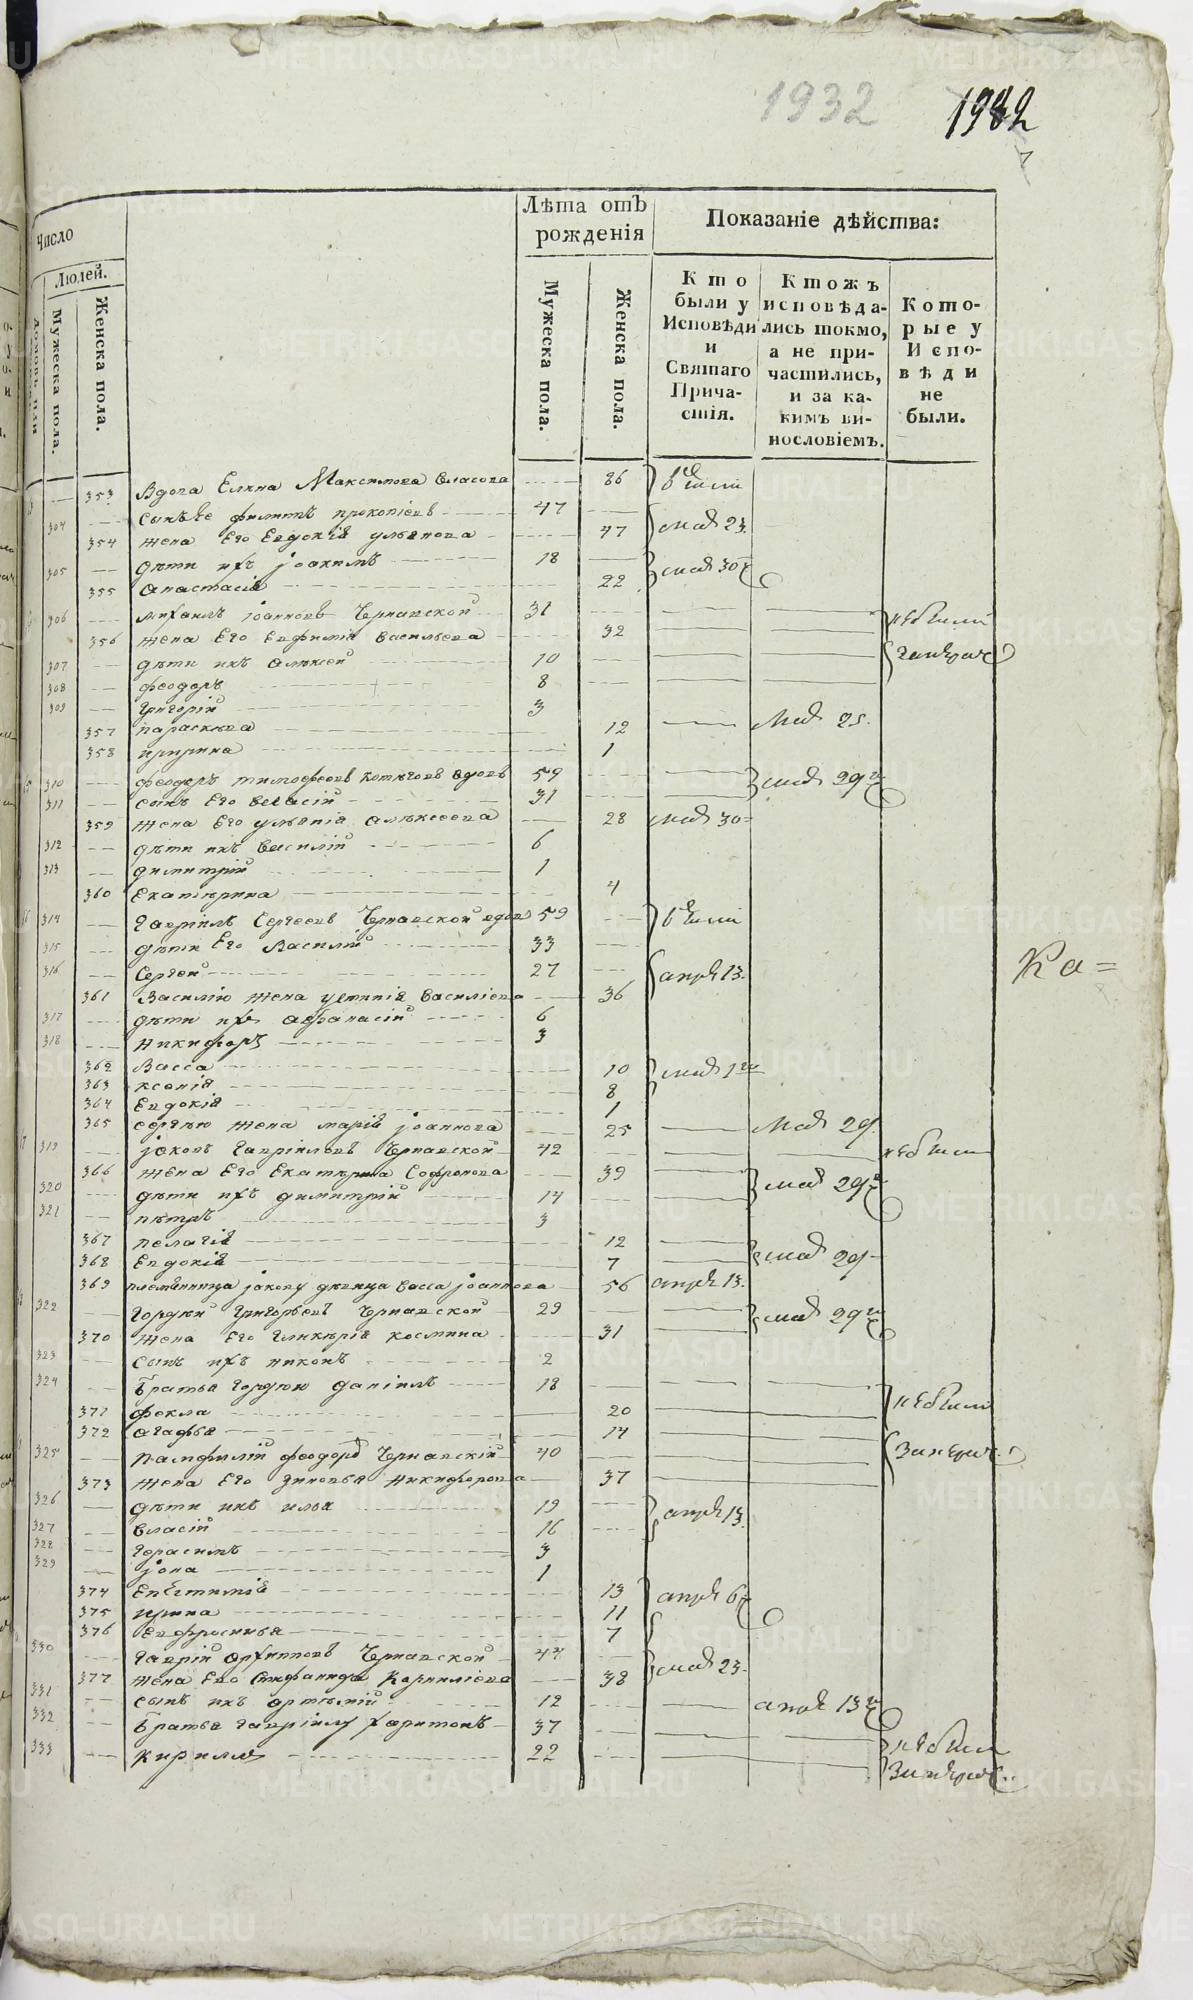 1932 1982
Число
Людей.
Мужеска пола.
Женска пола.
Лѣта отъ рожденія
Мужеска пола.
Женска пола.
Показаніе дѣйства:
Кто были у Исповѣди и Святаго Причастія.
Ктожъ исповѣдались токмо, а не причастились, и за какимъ винословіемъ.
Которые у Исповѣди не были.
353 Вдова Елена Максимова Власова 86
304 Сынъ Ее Филиппъ Прокопіевъ 47
354 Жена Его Евдокія Ульянова 47 мая 23.
305 Дѣти ихъ Іоакимъ 18
355 Анастасія 22 мая 30
306 Михаилъ Іоанновъ Чернавской 31 не были
356 Жена Его Евфимія Васильева 32
307 Дѣти ихъ Алексѣй 10
308 Феодоръ 8
309 Григорій 3
357 Параскева 12 Мая 25.
358 Ирина 1
310 Феодоръ Тимофеевъ вдовъ 59 мая 29
311 Сынъ Его Власій 31
359 Жена Его Ульянія Алексеева 28 мая 30
312 Дѣти ихъ Василій 6
313 Димитрій 1
360 Екатерина 4
314 Гавріилъ Сергеевъ Чернавской вдовъ 59
315 Дѣти Его Василій 33
316 Сергей 27 апрѣ 13.
361 Василію Жена Устинія Василіева 36
317 Дѣти ихъ Афанасій 6
318 Никифоръ 3
362 Васса 10 мая 1
363 Ксенія 8
364 Евдокія 1
365 Сергѣю Жена Марія Іоаннова 25 Мая 29.
319 Іаковъ Гавріиловъ Чернавской 42 не были
366 Жена Его Екатерина Софронова 39 мая 29
320 Дѣти ихъ Димитрій 14
321 Петръ 3
367 Пелагія 12
368 Евдокія 7 мая 29
369 племянница Іакову девица Васса Іоаннова 56 апрѣ 13.
322 Гордѣй Григорьевъ Чернавской 29 мая 29
370 Жена Его Гликерія Космина 31
323 Сынъ ихъ Никонъ 2
324 Братья Гордѣю Даніилъ 18 не были
371 Фекла 20
372 Агафья 14
325 Памфилій Феодоръ Чернавскій 40
373 Жена Его Зиновья Никифорова 37
326 Дѣти ихъ Илья 19 апрѣ 13.
327 Власій 16
328 Герасимъ 3
329 Іона 1
374 Евѳимія 13 апрѣ 6
375 Ирина 11
376 Евфросинья 7
330 Гаврій Архиповъ Чернавской 44
377 Жена Его Стефанида Корниліева 38 мая 23.
331 Сынъ ихъ Артемій 12 апрѣ 13
332 Братья Гавріилу Харитонъ 37 не были
333 Кирилъ 22
Ка=
METRIKI.GASO-URAL.RU